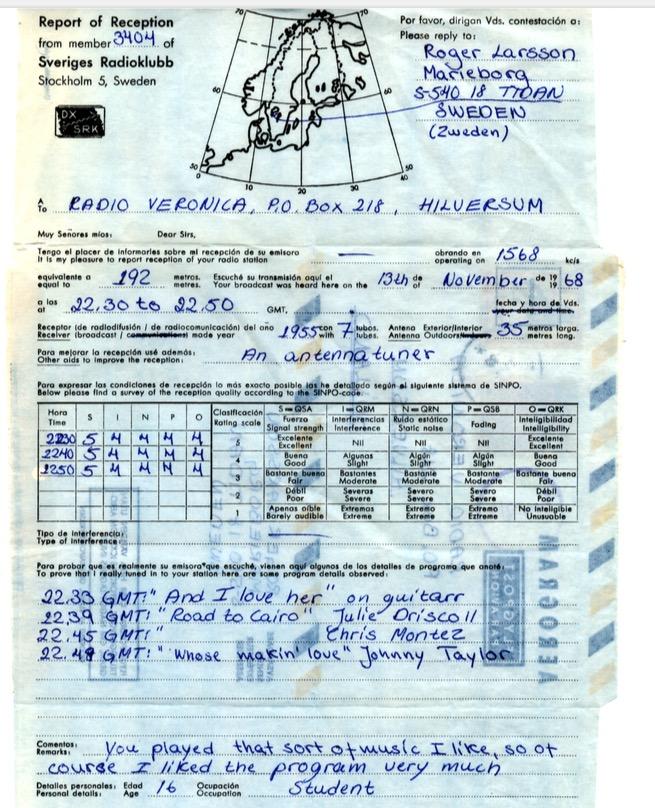 Report of Reception
from member 3404 of
Sveriges Radioklubb
Stockholm 5, Sweden
DX
SRK
70 70
60 60
50 50
10 20 30 40
Por favor, dirigan Vds. contestación a:
Please reply to:
Roger Larsson
Marieborg
S-540 18 TIDAN
SWEDEN
(Zweden)
A
To RADIO VERONICA, P.O. BOX 218, HILVERSUM
Muy Señores míos: Dear Sirs,
Tengo el placer de informarles sobre mi recepción de su emisora — obrando en 1568
It is my pleasure to report reception of your radio station operating on kc/s
equivalente a 192 metros. Escuché su transmisión aquí el 13th de November de 19 68
equal to metres. Your broadcast was heard here on the of 19
a las 22.30 to 22.50 GMT. fecha y hora de Vds.
at your date and time.
Receptor (de radiodifusión / de radiocomunicación) del año 1955 con 7 tubos. Antena Exterior/Interior 35 metros larga.
Receiver (broadcast / communications) made year with tubes. Antenna Outdoors/ metres long.
Para mejorar la recepción usé además: An antennatuner
Other aids to improve the reception:
Para expresar las condiciones de recepción lo más exacto posible las he detallado según el siguiente sistema de SINPO.
Below please find a survey of the reception quality according to the SINPO-code:
Hora
Time S I N P O
2230 5 4 4 4 4
2240 5 4 4 4 4
2250 5 4 4 4 4
Clasificación
Rating scale
S—QSA I—QRM N—QRN P—QSB O—QRK
Fuerza Interferencias Ruido estático Fading Inteligibilidad
Signal strength Interference Static noise Intelligibility
5 Excelente Nil Nil Nil Excelente
Excellent Excellent
4 Buena Algunas Algún Algún Buena
Good Slight Slight Slight Good
3 Bastante buena Bastantes Bastante Bastante Bastante buena
Fair Moderate Moderate Moderate Fair
2 Débil Severas Severo Severo Débil
Poor Severe Severe Severe Poor
1 Apenas oíble Extremas Extremo Extremo No Inteligible
Barely audible Extreme Extreme Extreme Unusuable
Tipo de interferencia:
Type of interference: —
Para probar que es realmente su emisora que escuché, vienen aquí algunos de los detalles de programa que anoté:
To prove that I really tuned in to your station here are some program details observed:
22.33 GMT: "And I love her" on guitarr
22.39 GMT: "Road to Cairo" Julie Driscoll
22.45 GMT: " Chris Montez
22.48 GMT: "Whose makin' love" Johnny Taylor
Comentos:
Remarks: You played that sort of music I like, so of
course I liked the program very much
Detalles personales: Edad 16 Ocupación Student
Personal details: Age Occupation
AEROGRAM